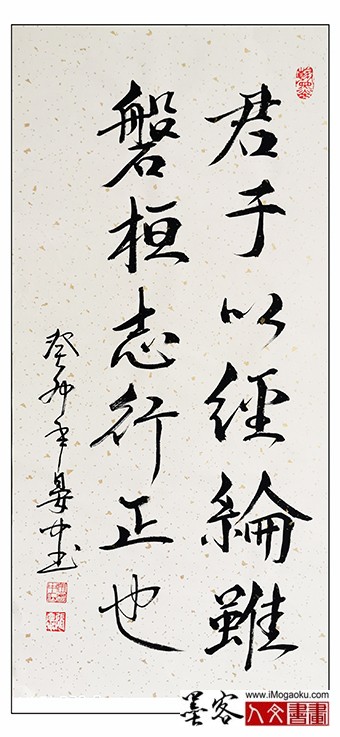 君子以經綸雖
磐桓志行正也
癸卯年
書
www.iMogaoku.com
墨客
人文書畫